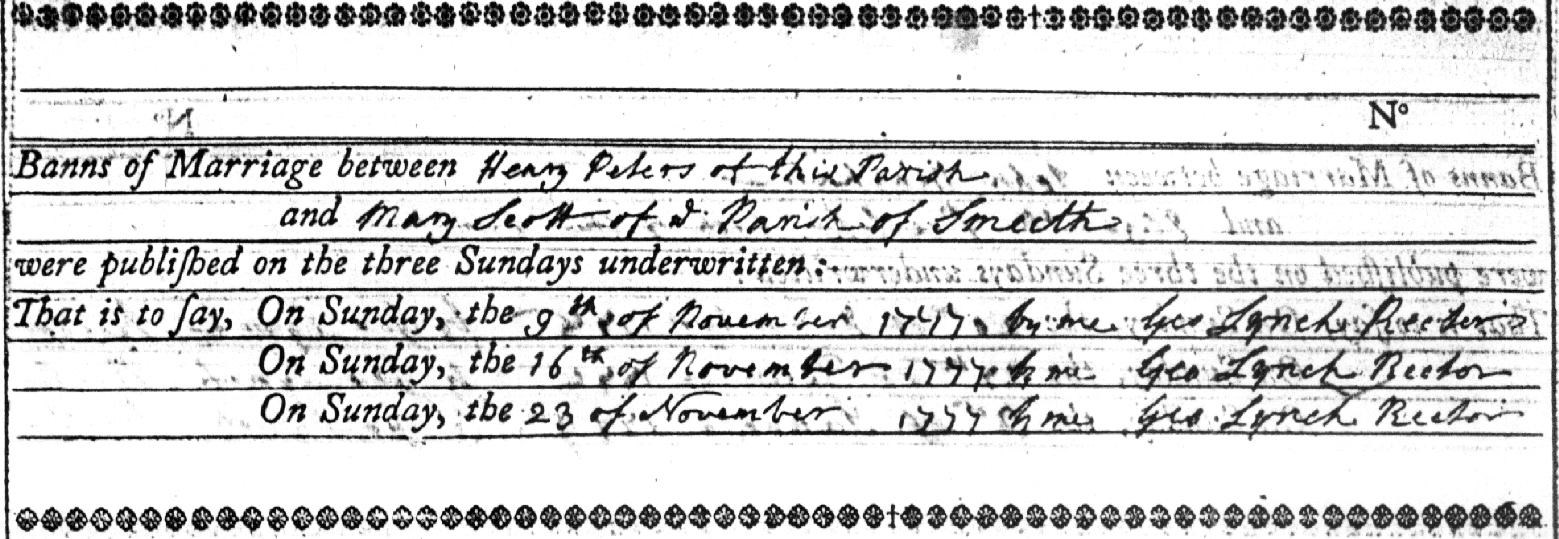 Nº
Banns of Marriage between Henry Peters of this Parish
and Mary Scott of Parish of Smeeth
were publiſhed on the three Sundays underwritten:
That is to ſay, On Sunday, the 9th of November 1777 by me Geo Lynch Rector
On Sunday, the 16th of November 1777 by me Geo Lynch Rector
On Sunday, the 23 of November 1777 by me Geo Lynch Rector